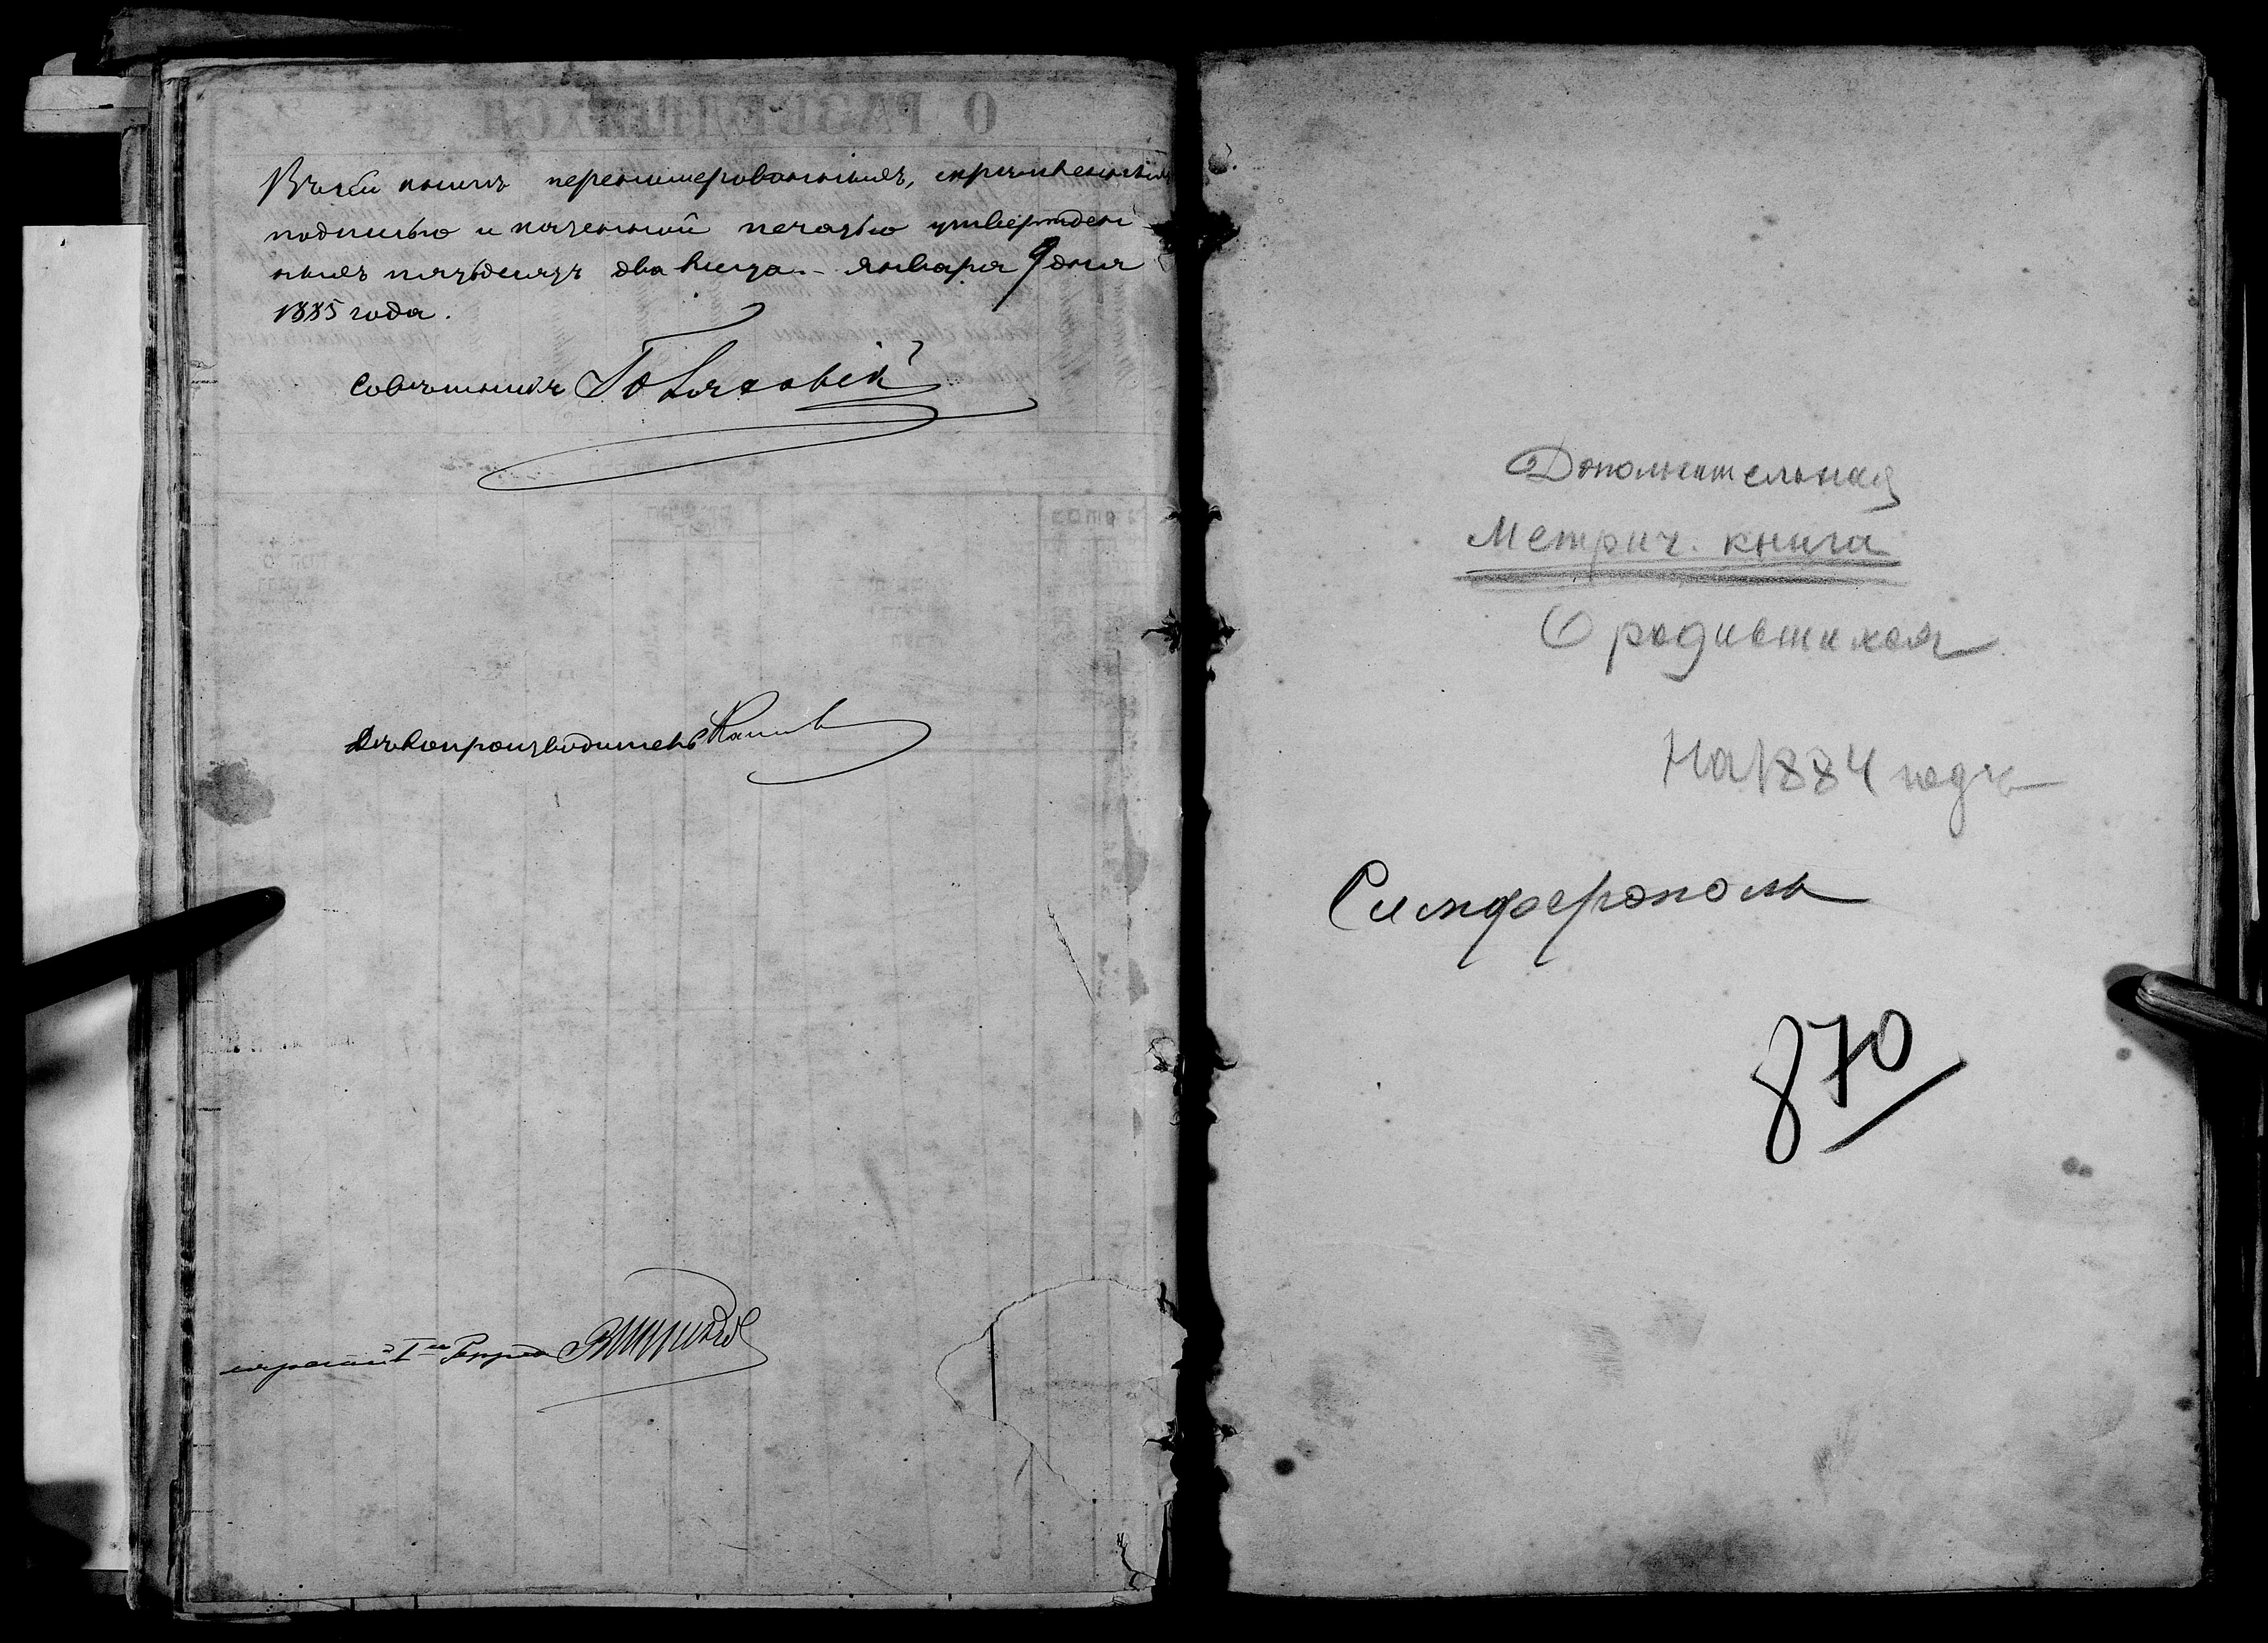 Въ сей книгѣ перенумерованныхъ, скрѣпленныхъ
подписью и казенной печатью утвержден
ныхъ пятьдесятъ два листа.- Января 9 дня
1885 года.
Совѣтникъ
Дѣлопроизводитель
Дополнительная
Метрич. книга
О родившихся
На 1884 годъ
Симферополь
870